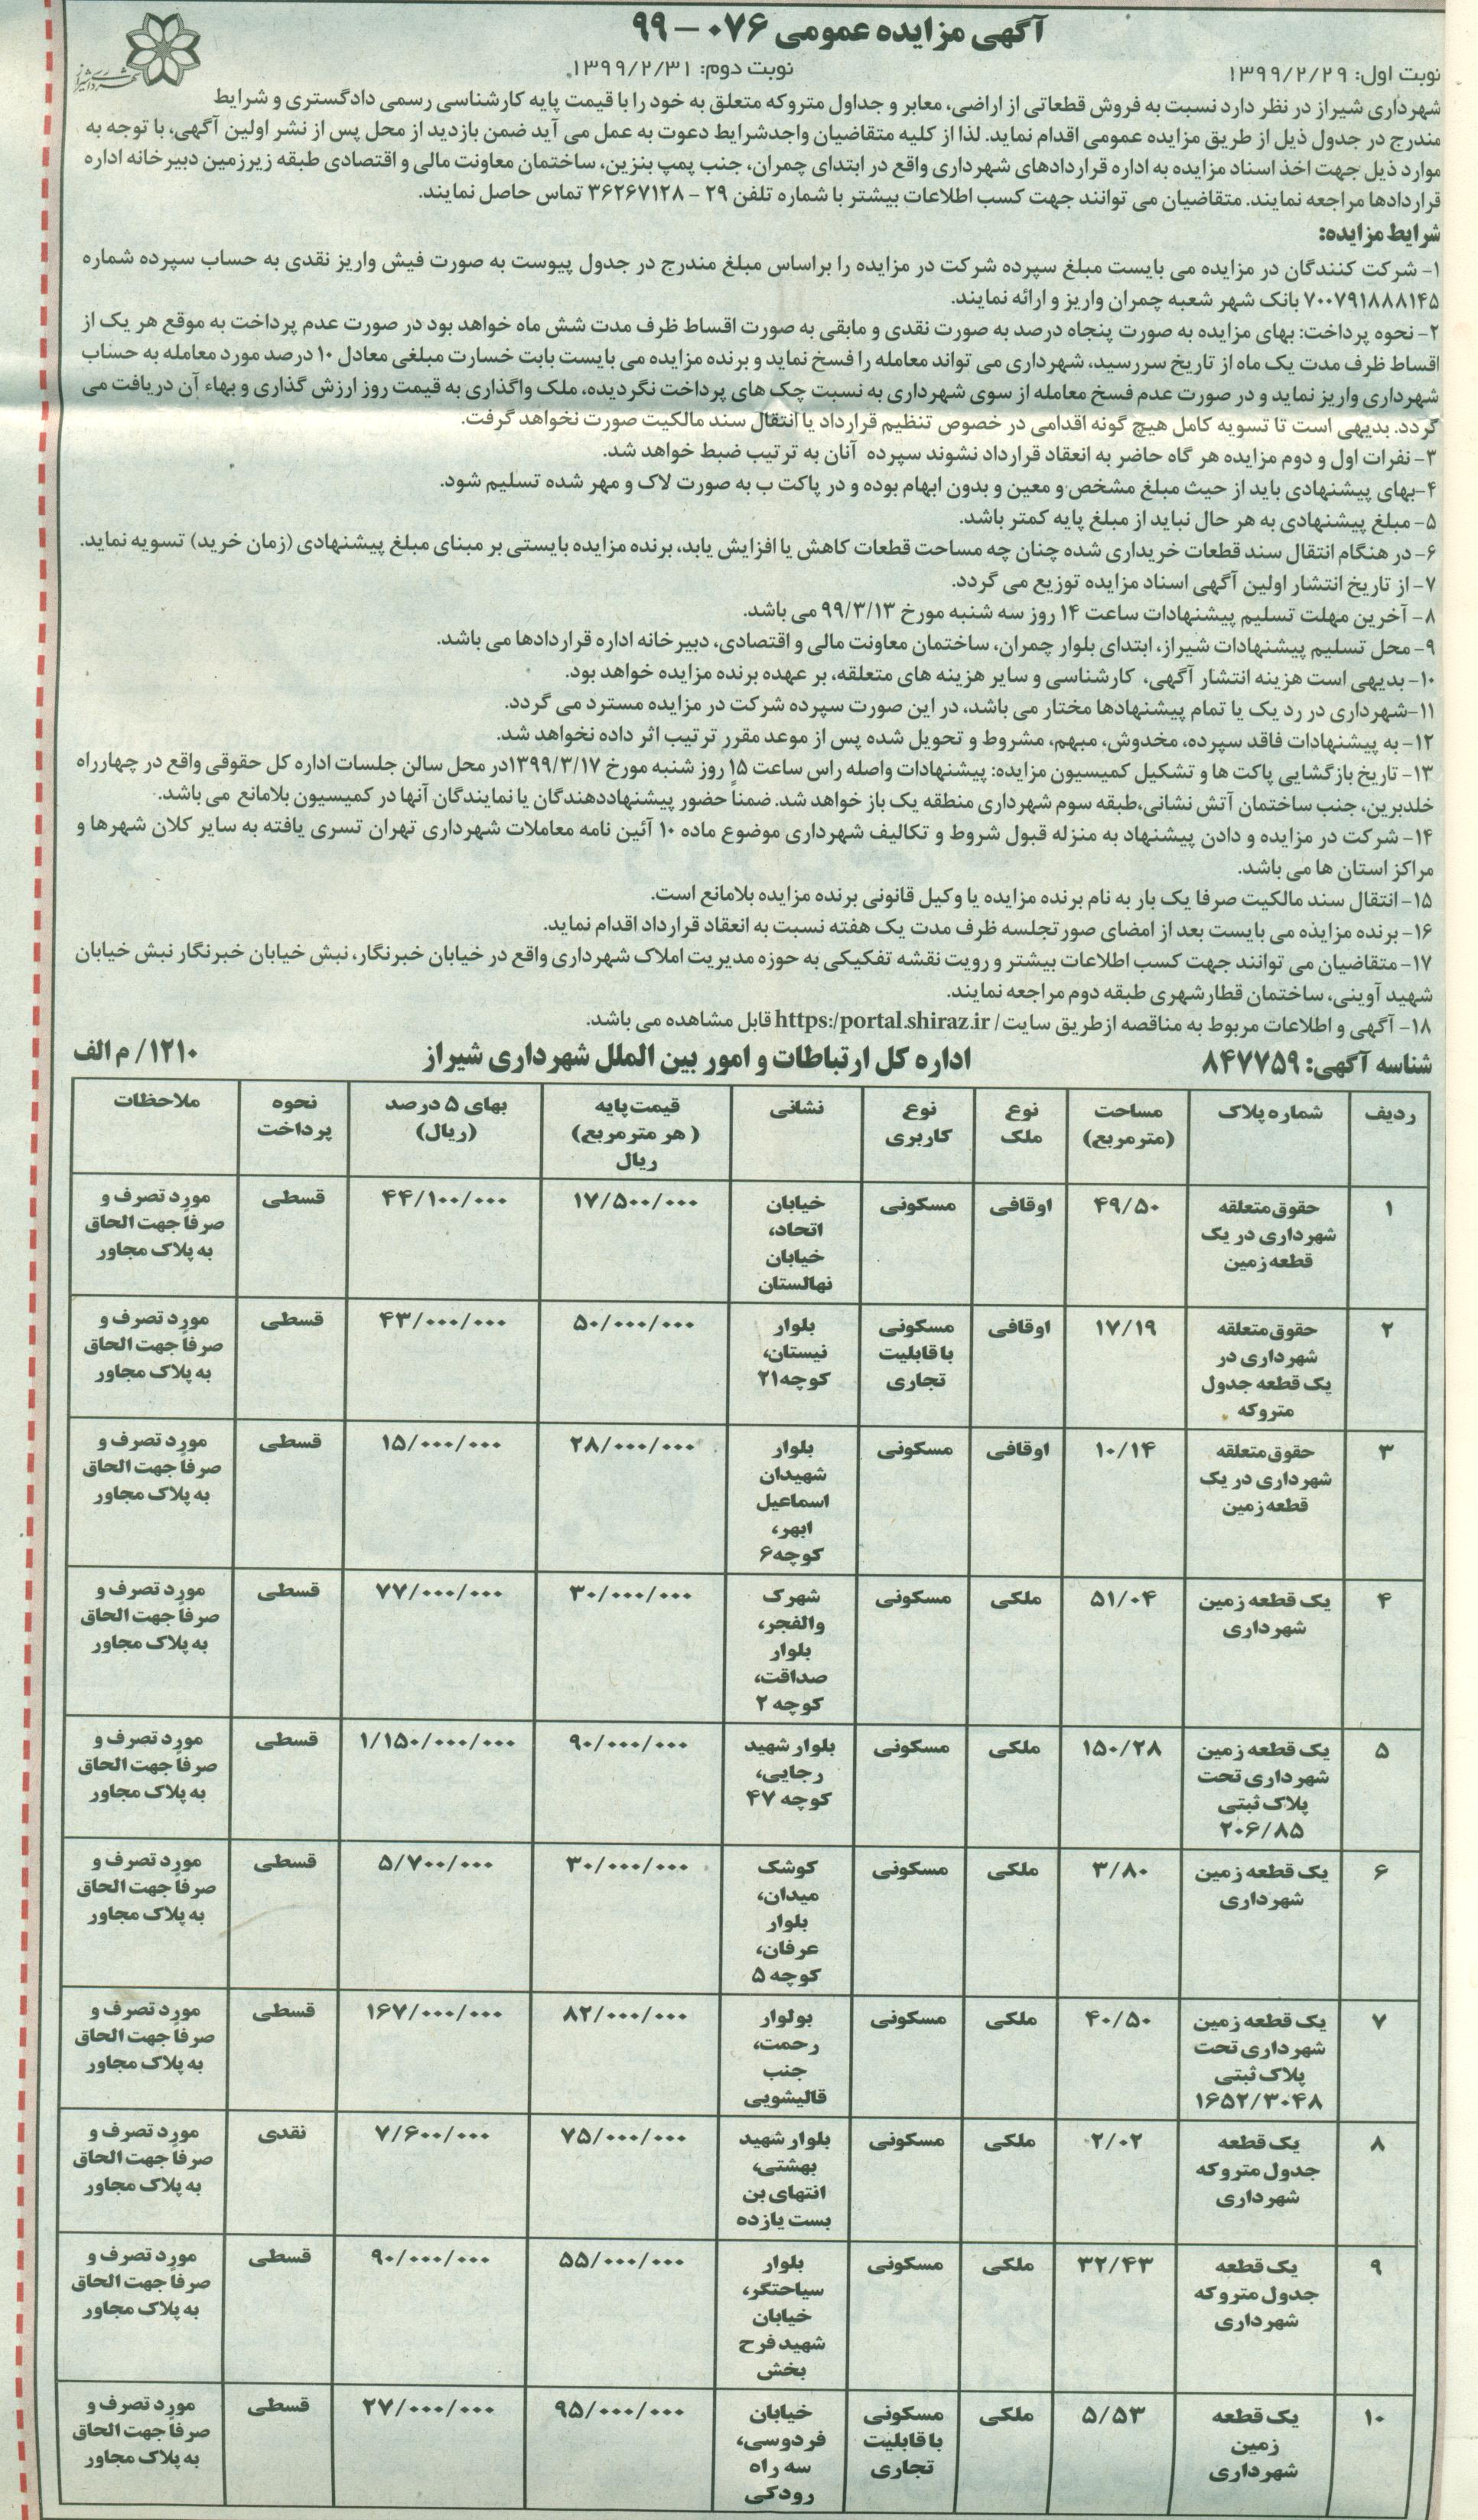 آگهی مزایده عمومی ۰۷۶ – ۹۹
نوبت اول: ۱۳۹۹/۲/۲۹
نوبت دوم: ۱۳۹۹/۲/۳۱
شهرداری شیراز
شهرداری شیراز در نظر دارد نسبت به فروش قطعاتی از اراضی، معابر و جداول متروکه متعلق به خود را با قیمت پایه کارشناسی رسمی دادگستری و شرایط
مندرج در جدول ذیل از طریق مزایده عمومی اقدام نماید. لذا از کلیه متقاضیان واجدشرایط دعوت به عمل می آید ضمن بازدید از محل پس از نشر اولین آگهی، با توجه به
موارد ذیل جهت اخذ اسناد مزایده به اداره قراردادهای شهرداری واقع در ابتدای چمران، جنب پمپ بنزین، ساختمان معاونت مالی و اقتصادی طبقه زیرزمین دبیرخانه اداره
قراردادها مراجعه نمایند. متقاضیان می توانند جهت کسب اطلاعات بیشتر با شماره تلفن ۲۹ – ۳۶۲۶۷۱۲۸ تماس حاصل نمایند.
شرایط مزایده:
۱- شرکت کنندگان در مزایده می بایست مبلغ سپرده شرکت در مزایده را براساس مبلغ مندرج در جدول پیوست به صورت فیش واریز نقدی به حساب سپرده شماره
۷۰۰۷۹۱۸۸۸۱۴۵ بانک شهر شعبه چمران واریز و ارائه نمایند.
۲- نحوه پرداخت: بهای مزایده به صورت پنجاه درصد به صورت نقدی و مابقی به صورت اقساط ظرف مدت شش ماه خواهد بود در صورت عدم پرداخت به موقع هر یک از
اقساط ظرف مدت یک ماه از تاریخ سررسید، شهرداری می تواند معامله را فسخ نماید و برنده مزایده می بایست بابت خسارت مبلغی معادل ۱۰ درصد مورد معامله به حساب
شهرداری واریز نماید و در صورت عدم فسخ معامله از سوی شهرداری به نسبت چک های پرداخت نگردیده، ملک واگذاری به قیمت روز ارزش گذاری و بهاء آن دریافت می
گردد. بدیهی است تا تسویه کامل هیچ گونه اقدامی در خصوص تنظیم قرارداد یا انتقال سند مالکیت صورت نخواهد گرفت.
۳- نفرات اول و دوم مزایده هر گاه حاضر به انعقاد قرارداد نشوند سپرده آنان به ترتیب ضبط خواهد شد.
۴-بهای پیشنهادی باید از حیث مبلغ مشخص و معین و بدون ابهام بوده و در پاکت ب به صورت لاک و مهر شده تسلیم شود.
۵- مبلغ پیشنهادی به هر حال نباید از مبلغ پایه کمتر باشد.
۶- در هنگام انتقال سند قطعات خریداری شده چنان چه مساحت قطعات کاهش یا افزایش یابد، برنده مزایده بایستی بر مبنای مبلغ پیشنهادی (زمان خرید) تسویه نماید.
۷- از تاریخ انتشار اولین آگهی اسناد مزایده توزیع می گردد.
۸- آخرین مهلت تسلیم پیشنهادات ساعت ۱۴ روز سه شنبه مورخ ۹۹/۳/۱۳ می باشد.
۹- محل تسلیم پیشنهادات شیراز، ابتدای بلوار چمران، ساختمان معاونت مالی و اقتصادی، دبیرخانه اداره قراردادها می باشد.
۱۰- بدیهی است هزینه انتشار آگهی، کارشناسی و سایر هزینه های متعلقه، بر عهده برنده مزایده خواهد بود.
۱۱-شهرداری در رد یک یا تمام پیشنهادها مختار می باشد، در این صورت سپرده شرکت در مزایده مسترد می گردد.
۱۲- به پیشنهادات فاقد سپرده، مخدوش، مبهم، مشروط و تحویل شده پس از موعد مقرر ترتیب اثر داده نخواهد شد.
۱۳- تاریخ بازگشایی پاکت ها و تشکیل کمیسیون مزایده: پیشنهادات واصله راس ساعت ۱۵ روز شنبه مورخ ۱۳۹۹/۳/۱۷در محل سالن جلسات اداره کل حقوقی واقع در چهارراه
خلدبرین، جنب ساختمان آتش نشانی،طبقه سوم شهرداری منطقه یک باز خواهد شد. ضمناً حضور پیشنهاددهندگان یا نمایندگان آنها در کمیسیون بلامانع می باشد.
۱۴- شرکت در مزایده و دادن پیشنهاد به منزله قبول شروط و تکالیف شهرداری موضوع ماده ۱۰ آئین نامه معاملات شهرداری تهران تسری یافته به سایر کلان شهرها و
مراکز استان ها می باشد.
۱۵- انتقال سند مالکیت صرفا یک بار به نام برنده مزایده یا وکیل قانونی برنده مزایده بلامانع است.
۱۶- برنده مزایده می بایست بعد از امضای صورتجلسه ظرف مدت یک هفته نسبت به انعقاد قرارداد اقدام نماید.
۱۷- متقاضیان می توانند جهت کسب اطلاعات بیشتر و رویت نقشه تفکیکی به حوزه مدیریت املاک شهرداری واقع در خیابان خبرنگار، نبش خیابان خبرنگار نبش خیابان
شهید آوینی، ساختمان قطارشهری طبقه دوم مراجعه نمایند.
۱۸- آگهی و اطلاعات مربوط به مناقصه ازطریق سایت/ https:/portal.shiraz.ir قابل مشاهده می باشد.
شناسه آگهی: ۸۴۷۷۵۹
اداره کل ارتباطات و امور بین الملل شهرداری شیراز
۱۲۱۰/ م الف
ردیف
شماره پلاک
مساحت
(مترمربع)
نوع
ملک
نوع
کاربری
نشانی
قیمت پایه
( هر مترمربع)
ریال
بهای ۵ درصد
(ریال)
نحوه
پرداخت
ملاحظات
۱
حقوق متعلقه
شهرداری در یک
قطعه زمین
۴۹/۵۰
اوقافی
مسکونی
خیابان
اتحاد،
خیابان
نهالستان
۱۷/۵۰۰/۰۰۰
۴۴/۱۰۰/۰۰۰
قسطی
مورد تصرف و
صرفاً جهت الحاق
به پلاک مجاور
۲
حقوق متعلقه
شهرداری در
یک قطعه جدول
متروکه
۱۷/۱۹
اوقافی
مسکونی
با قابلیت
تجاری
بلوار
نیستان،
کوچه۲۱
۵۰/۰۰۰/۰۰۰
۴۳/۰۰۰/۰۰۰
قسطی
مورد تصرف و
صرفاً جهت الحاق
به پلاک مجاور
۳
حقوق متعلقه
شهرداری در یک
قطعه زمین
۱۰/۱۴
اوقافی
مسکونی
بلوار
شهیدان
اسماعیل
ابهر،
کوچه۶
۲۸/۰۰۰/۰۰۰
۱۵/۰۰۰/۰۰۰
قسطی
مورد تصرف و
صرفاً جهت الحاق
به پلاک مجاور
۴
یک قطعه زمین
شهرداری
۵۱/۰۴
ملکی
مسکونی
شهرک
والفجر،
بلوار
صداقت،
کوچه ۲
۳۰/۰۰۰/۰۰۰
۷۷/۰۰۰/۰۰۰
قسطی
مورد تصرف و
صرفاً جهت الحاق
به پلاک مجاور
۵
یک قطعه زمین
شهرداری تحت
پلاک ثبتی
۲۰۶/۸۵
۱۵۰/۲۸
ملکی
مسکونی
بلوار شهید
رجایی،
کوچه ۴۷
۹۰/۰۰۰/۰۰۰
۱/۱۵۰/۰۰۰/۰۰۰
قسطی
مورد تصرف و
صرفاً جهت الحاق
به پلاک مجاور
۶
یک قطعه زمین
شهرداری
۳/۸۰
ملکی
مسکونی
کوشک
میدان،
بلوار
عرفان،
کوچه ۵
۳۰/۰۰۰/۰۰۰
۵/۷۰۰/۰۰۰
قسطی
مورد تصرف و
صرفاً جهت الحاق
به پلاک مجاور
۷
یک قطعه زمین
شهرداری تحت
پلاک ثبتی
۱۶۵۲/۳۰۴۸
۴۰/۵۰
ملکی
مسکونی
بولوار
رحمت،
جنب
قالیشویی
۸۲/۰۰۰/۰۰۰
۱۶۷/۰۰۰/۰۰۰
قسطی
مورد تصرف و
صرفاً جهت الحاق
به پلاک مجاور
۸
یک قطعه
جدول متروکه
شهرداری
۲/۰۲
ملکی
مسکونی
بلوار شهید
بهشتی،
انتهای بن
بست یازده
۷۵/۰۰۰/۰۰۰
۷/۶۰۰/۰۰۰
نقدی
مورد تصرف و
صرفاً جهت الحاق
به پلاک مجاور
۹
یک قطعه
جدول متروکه
شهرداری
۳۲/۴۳
ملکی
مسکونی
بلوار
سیاحتگر،
خیابان
شهید فرح
بخش
۵۵/۰۰۰/۰۰۰
۹۰/۰۰۰/۰۰۰
قسطی
مورد تصرف و
صرفاً جهت الحاق
به پلاک مجاور
۱۰
یک قطعه
زمین
شهرداری
۵/۵۳
ملکی
مسکونی
با قابلیت
تجاری
خیابان
فردوسی،
سه راه
رودکی
۹۵/۰۰۰/۰۰۰
۲۷/۰۰۰/۰۰۰
قسطی
مورد تصرف و
صرفاً جهت الحاق
به پلاک مجاور